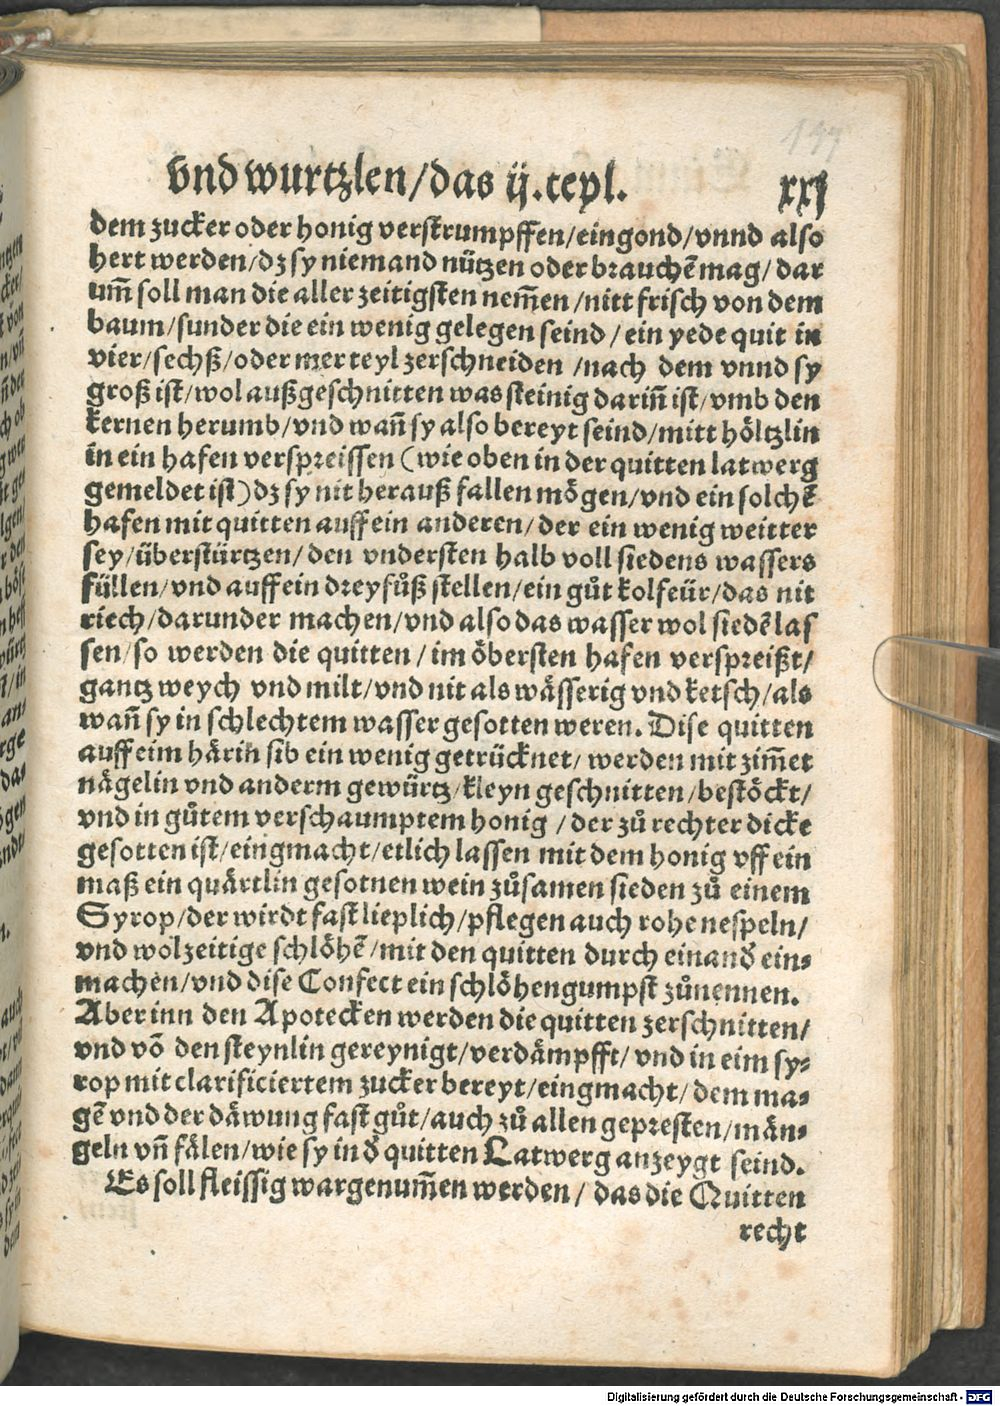 vnd wurtzlen/das ij.teyl. xxj
dem zucker oder honig verstrumpffen/eingond/vnnd also
hert werden/dz sy niemand nützen oder brauchẽ mag/dar
um̃ soll man die aller zeitigsten nem̃en/nitt frisch von dem
baum/sunder die ein wenig gelegen seind/ein yede quit in
vier/sechß/oder mer teyl zerschneiden/nach dem vnnd sy
groß ist/wol außgeschnitten was steinig dariñ ist/vmb den
kernen herumb/vnd wañ sy also bereyt seind/mitt höltzlin
in ein hafen verspreissen (wie oben in der quitten latwerg
gemeldet ist) dz sy nit herauß fallen mögen/vnd ein solchẽ
hafen mit quitten auff ein anderen/der ein wenig weitter
sey/überstürtzen/den vndersten halb voll siedens wassers
füllen/vnd auff ein dreyfůß stellen/ein gůt kolfeür/das nit
riech/darunder machen/vnd also das wasser wol siedẽ las
sen/so werden die quitten/im öbersten hafen verspreißt/
gantz weych vnd milt/vnd nit als wässerig vnd ketsch/als
wañ sy in schlechtem wasser gesotten weren. Dise quitten
auff eim härin sib ein wenig getrücknet/werden mit zim̃et
nägelin vnd anderm gewürtz/kleyn geschnitten/bestöckt/
vnd in gůtem verschaumptem honig/der zů rechter dicke
gesotten ist/eingmacht/etlich lassen mit dem honig vff ein
maß ein quärtlin gesotnen wein zůsamen sieden zů einem
Syrop/der wirdt fast lieplich/pflegen auch rohe nespeln/
vnd wolzeitige schlöhẽ/mit den quitten durch einanđ ein⸗
machen/vnd dise Confect ein schlöhengumpst zůnennen.
Aber inn den Apotecken werden die quitten zerschnitten/
vnd võ den steynlin gereynigt/verdämpfft/vnd in eim sy⸗
rop mit clarificiertem zucker bereyt/eingmacht/dem ma⸗
gẽ vnd der däwung fast gůt/auch zů allen gepresten/män⸗
geln vñ fälen/wie sy in đ quitten Latwerg anzeygt seind.
Es soll fleissig wargenum̃en werden/das die Quitten
recht
Digitalisierung gefördert durch die Deutsche Forschungsgemeinschaft - DFG